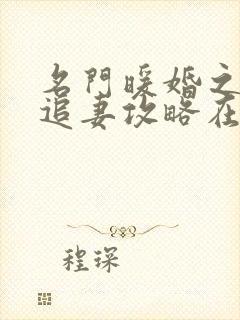 名門暖婚之
追妻攻略在
程琛